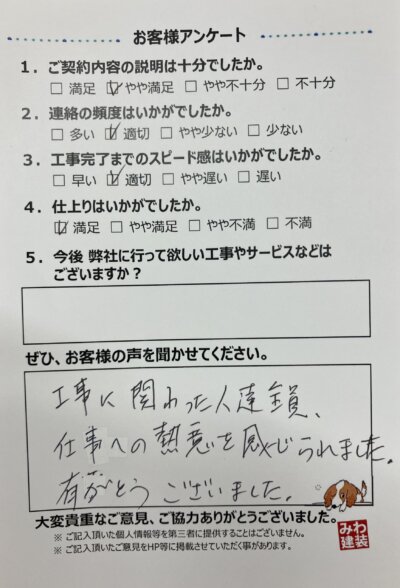 お客様アンケート
1．ご契約内容の説明は十分でしたか。
□ 満足 ☑ やや満足 □ やや不十分 □ 不十分
2．連絡の頻度はいかがでしたか。
□ 多い ☑ 適切 □ やや少ない □ 少ない
3．工事完了までのスピード感はいかがでしたか。
□ 早い ☑ 適切 □ やや遅い □ 遅い
4．仕上りはいかがでしたか。
☑ 満足 □ やや満足 □ やや不満 □ 不満
5．今後 弊社に行って欲しい工事やサービスなどは
ございますか？
ぜひ、お客様の声を聞かせてください。
工事に関わった人達
仕事への熱意を感じられました。
有がとうございました。
大変貴重なご意見、ご協力ありがとうございました。
※ ご記入頂いた個人情報等を第三者に提供することはございません。
※ ご記入頂いたご意見をHP等に掲載させていただく事があります。
みわ
建装